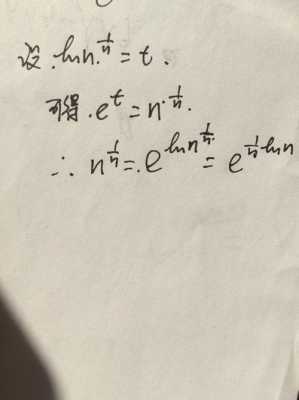 设.ln n^{\frac{1}{n}} = t.
可得.e^{t} = n^{\frac{1}{n}}.
∴ n^{\frac{1}{n}} = e^{ln n^{\frac{1}{n}}} = e^{\frac{1}{n} ln n}